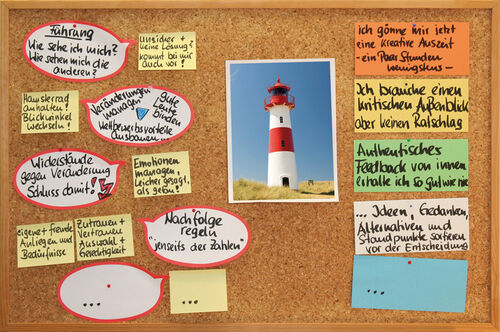 Führung
Wie sehe ich mich?
Wie sehen mich die
anderen?
unsicher?
keine Lösung?
kommt bei mir
auch vor!
Hamsterrad
anhalten!
Blickwinkel
wechseln!
Veränderungen
managen
gute
Leute
binden
Wettbewerbsvorteile
ausbauen...
Widerstände
gegen Veränderung
Schluss damit!
Emotionen
managen,
leichter gesagt,
als getan!
eigene + fremde
Anliegen und
Bedürfnisse
Zutrauen +
Vertrauen
Auswahl +
Gerechtigkeit
Nachfolge
regeln
"jenseits der Zahlen"
...
...
Ich gönne mir jetzt
eine kreative Auszeit
- ein Paar Stunden
wenigstens -
Ich brauche einen
kritischen Außenblick
aber keinen Ratschlag
Authentisches
Feedback von innen
erhalte ich so gut wie nie
... Ideen, Gedanken,
Alternativen und
Standpunkte sortieren
vor der Entscheidung
...